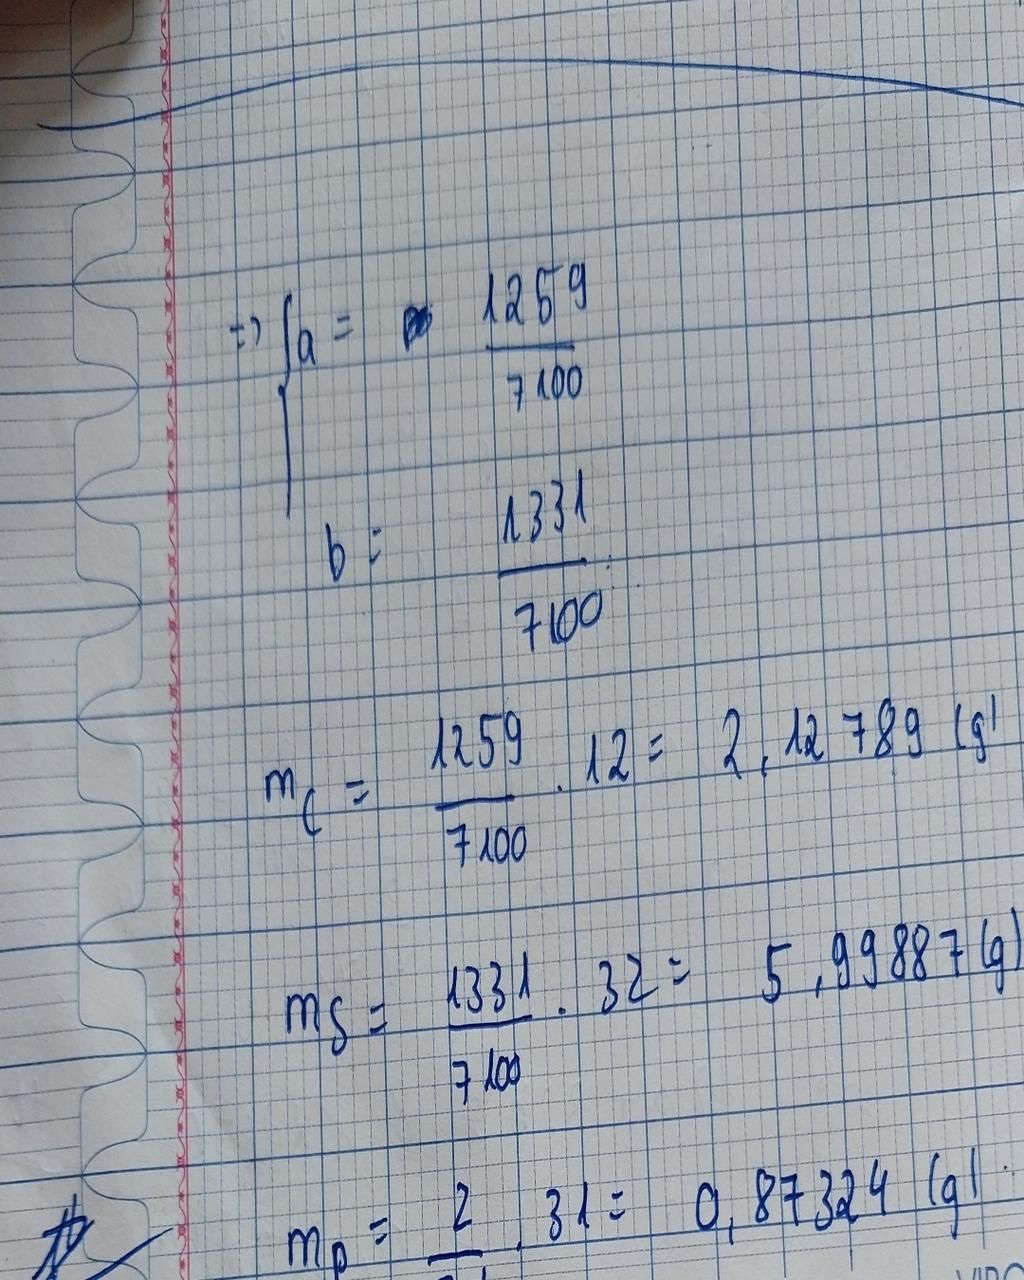 => { a = 1259 / 7100
b = 1331 / 7100
mC = 1259 / 7100 . 12 = 2,12789 (g)
mS = 1331 / 7100 . 32 = 5,99887 (g)
mP = 2 / . 31 = 0,87324 (g).